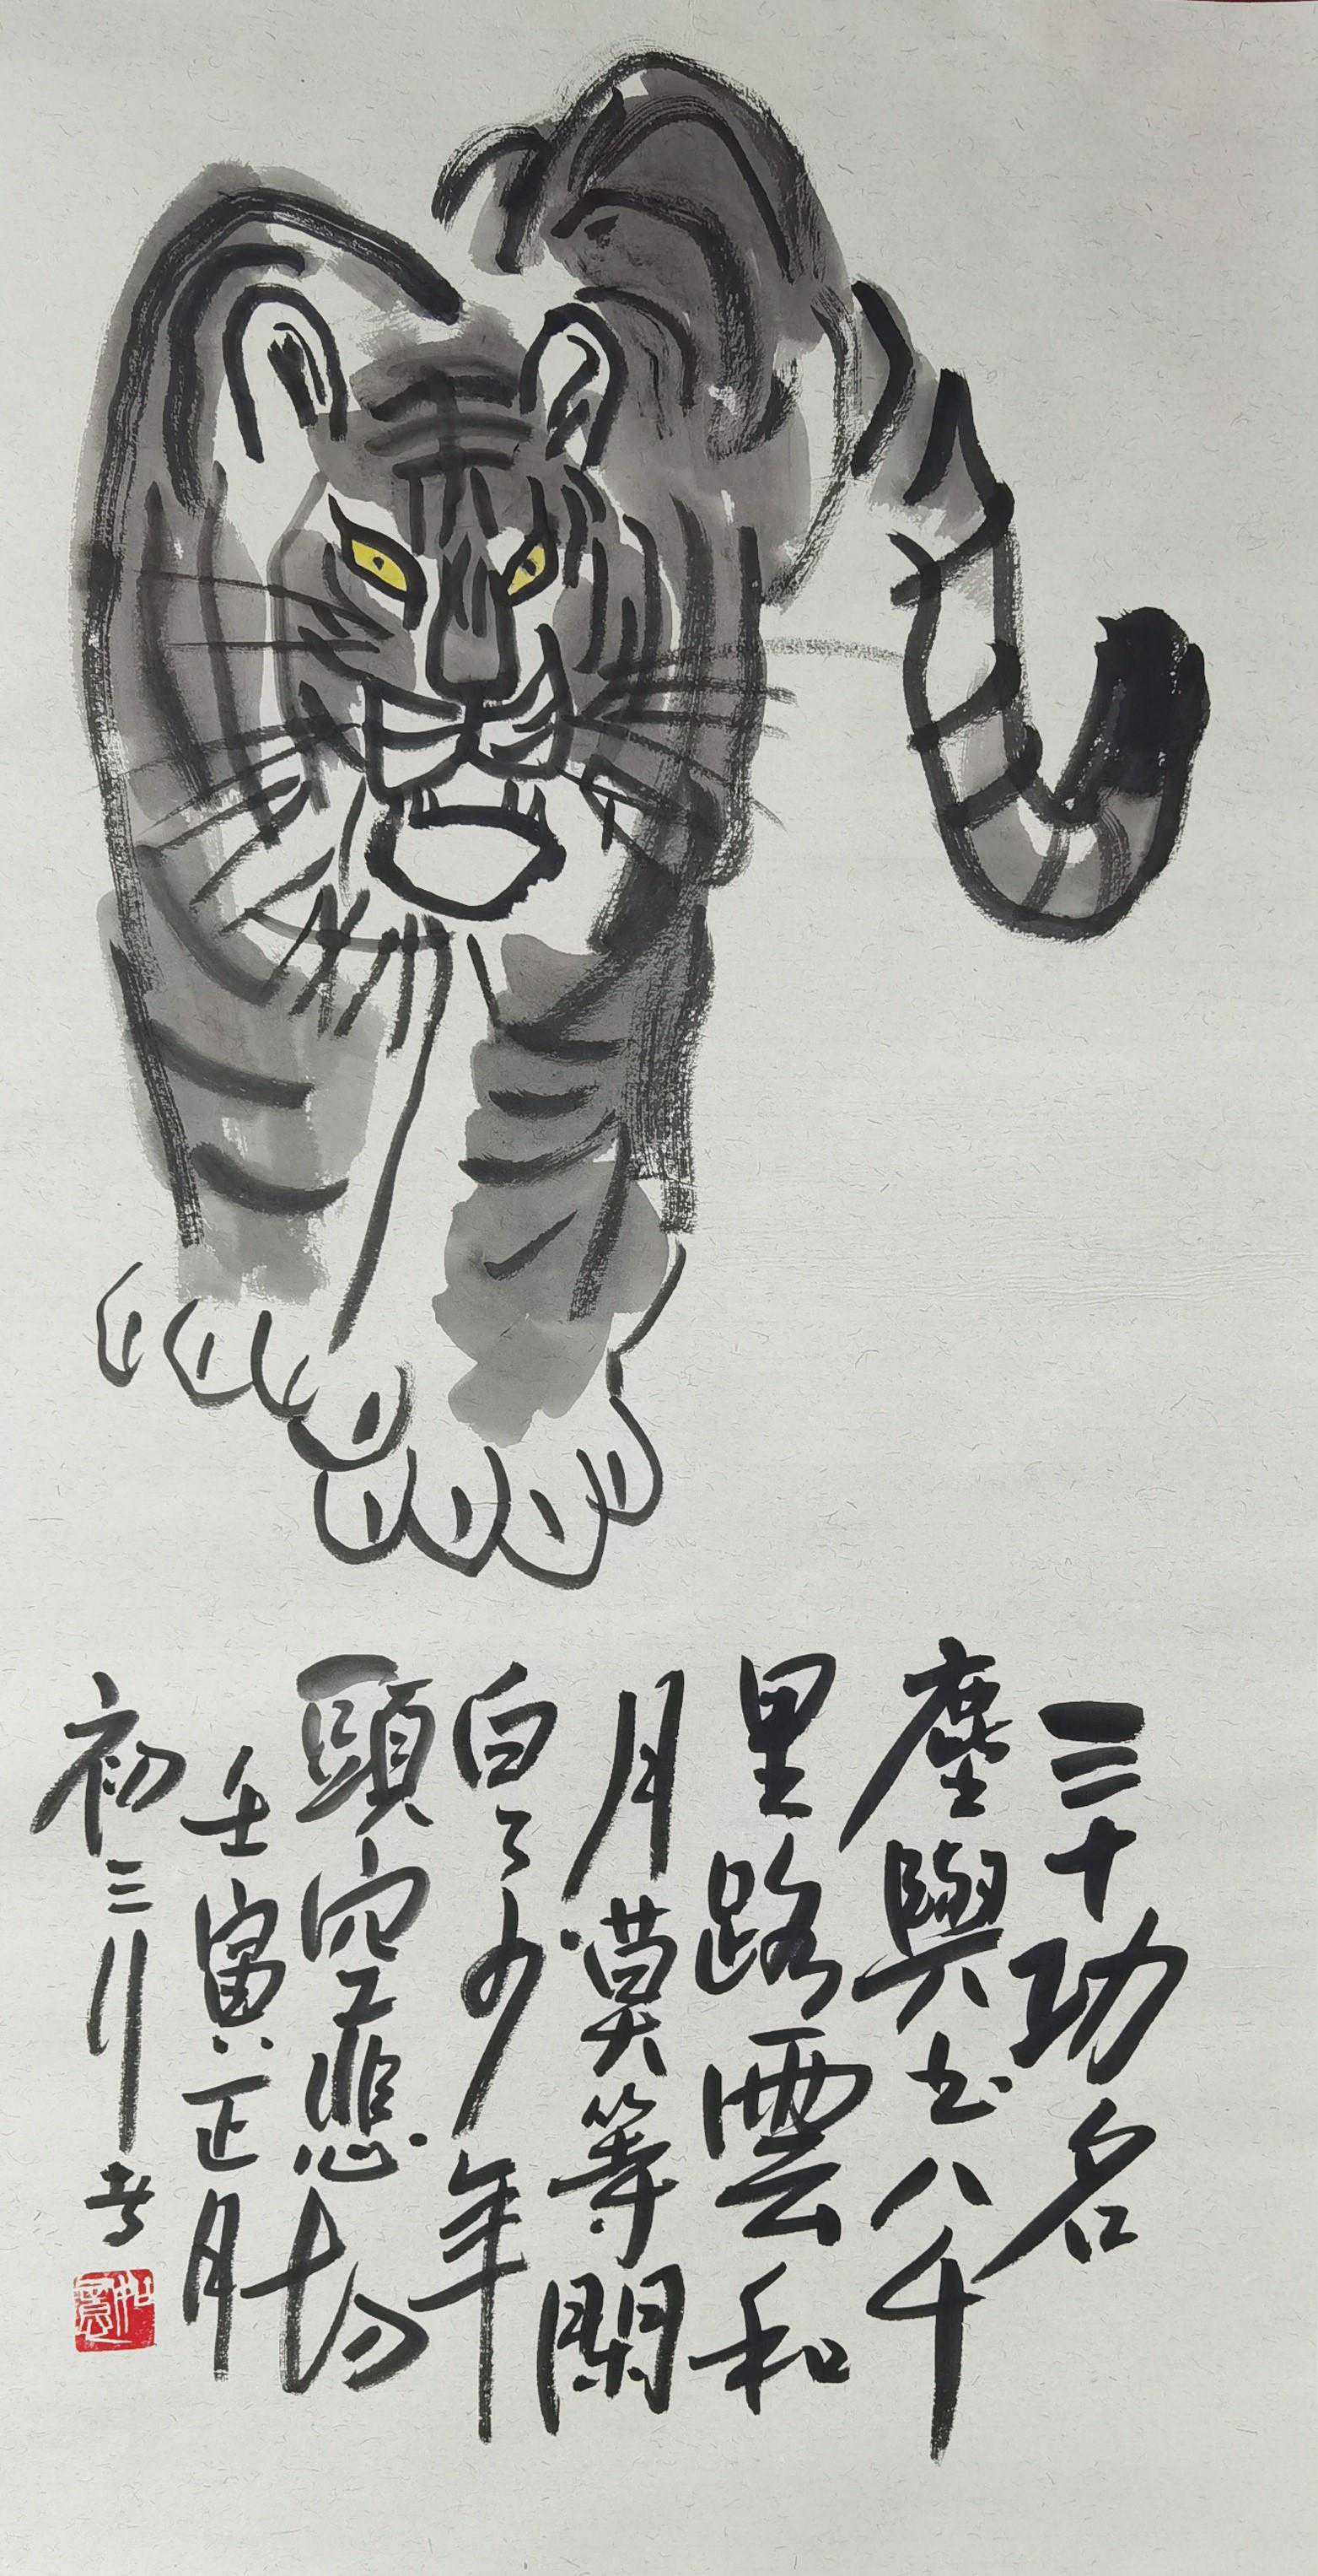 三十功名
塵與土八千
里路雲和
月莫等閑
白了少年
頭空悲切
壬寅正月
初三川